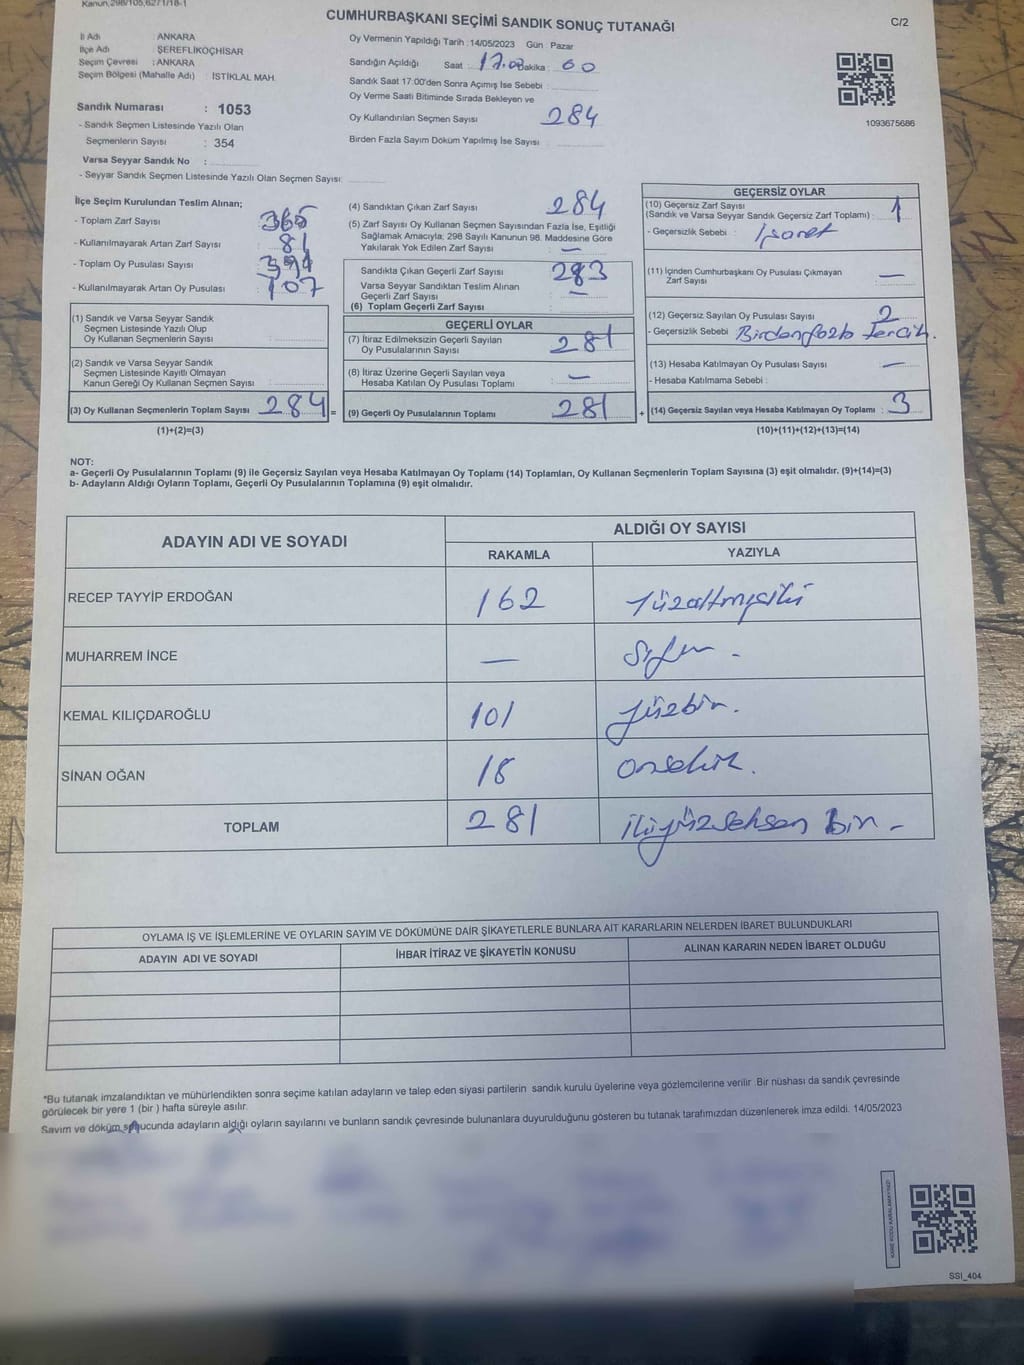 Kanun,298/105,6271/18-1
CUMHURBAŞKANI SEÇİMİ SANDIK SONUÇ TUTANAĞI
C/2
İl Adı ANKARA
İlçe Adı ŞEREFLİKOÇHİSAR
Seçim Çevresi :ANKARA
Seçim Bölgesi (Mahalle Adı) : İSTİKLAL MAH.
Sandık Numarası : 1053
- Sandık Seçmen Listesinde Yazılı Olan
Seçmenlerin Sayısı : 354
Varsa Seyyar Sandık No :
- Seyyar Sandık Seçmen Listesinde Yazılı Olan Seçmen Sayısı:
Oy Vermenin Yapıldığı Tarih :14/05/2023 Gün : Pazar
Sandığın Açıldığı Saat : 17.00 Dakika : 00
Sandık Saat 17:00'den Sonra Açımış İse Sebebi :
Oy Verme Saati Bitiminde Sırada Bekleyen ve
Oy Kullandırılan Seçmen Sayısı : 284
Birden Fazla Sayım Döküm Yapılmış İse Sayısı :
1093675686
İlçe Seçim Kurulundan Teslim Alınan;
- Toplam Zarf Sayısı : 365
- Kullanılmayarak Artan Zarf Sayısı : 81
- Toplam Oy Pusulası Sayısı :
- Kullanılmayarak Artan Oy Pusulası : 107
(1) Sandık ve Varsa Seyyar Sandık
Seçmen Listesinde Yazılı Olup
Oy Kullanan Seçmenlerin Sayısı :
(2) Sandık ve Varsa Seyyar Sandık
Seçmen Listesinde Kayıtlı Olmayan
Kanun Gereği Oy Kullanan Seçmen Sayısı :
(3) Oy Kullanan Seçmenlerin Toplam Sayısı : 284 =
(1)+(2)=(3)
(4) Sandıktan Çıkan Zarf Sayısı : 284
(5) Zarf Sayısı Oy Kullanan Seçmen Sayısından Fazla İse, Eşitliği
Sağlamak Amacıyla; 298 Sayılı Kanunun 98. Maddesine Göre
Yakılarak Yok Edilen Zarf Sayısı : —
Sandıkta Çıkan Geçerli Zarf Sayısı : 283
Varsa Seyyar Sandıktan Teslim Alınan
Geçerli Zarf Sayısı : —
(6) Toplam Geçerli Zarf Sayısı :
GEÇERLİ OYLAR
(7) İtiraz Edilmeksizin Geçerli Sayılan
Oy Pusulalarının Sayısı : 281
(8) İtiraz Üzerine Geçerli Sayılan veya
Hesaba Katılan Oy Pusulası Toplamı : —
(9) Geçerli Oy Pusulalarının Toplamı : 281 +
GEÇERSİZ OYLAR
(10) Geçersiz Zarf Sayısı
(Sandık ve Varsa Seyyar Sandık Geçersiz Zarf Toplamı) : 1
- Geçersizlik Sebebi : İşaret
(11) İçinden Cumhurbaşkanı Oy Pusulası Çıkmayan
Zarf Sayısı : —
(12) Geçersiz Sayılan Oy Pusulası Sayısı : 2
- Geçersizlik Sebebi : Birden fazla tercih.
(13) Hesaba Katılmayan Oy Pusulası Sayısı : —
- Hesaba Katılmama Sebebi :
(14) Geçersiz Sayılan veya Hesaba Katılmayan Oy Toplamı : 3
(10)+(11)+(12)+(13)=(14)
NOT:
a- Geçerli Oy Pusulalarının Toplamı (9) ile Geçersiz Sayılan veya Hesaba Katılmayan Oy Toplamı (14) Toplamları, Oy Kullanan Seçmenlerin Toplam Sayısına (3) eşit olmalıdır. (9)+(14)=(3)
b- Adayların Aldığı Oyların Toplamı, Geçerli Oy Pusulalarının Toplamına (9) eşit olmalıdır.
ADAYIN ADI VE SOYADI
ALDIĞI OY SAYISI
RAKAMLA YAZIYLA
RECEP TAYYİP ERDOĞAN 162 Yüzaltmışiki
MUHARREM İNCE — Sıfır -
KEMAL KILIÇDAROĞLU 101 yüzbir.
SİNAN OĞAN 18 onsekiz.
TOPLAM 281 ikiyüzseksen bir -
OYLAMA İŞ VE İŞLEMLERİNE VE OYLARIN SAYIM VE DÖKÜMÜNE DAİR ŞİKAYETLERLE BUNLARA AİT KARARLARIN NELERDEN İBARET BULUNDUKLARI
ADAYIN ADI VE SOYADI
İHBAR İTİRAZ VE ŞİKAYETİN KONUSU
ALINAN KARARIN NEDEN İBARET OLDUĞU
*Bu tutanak imzalandıktan ve mühürlendikten sonra seçime katılan adayların ve talep eden siyasi partilerin sandık kurulu üyelerine veya gözlemcilerine verilir. Bir nüshası da sandık çevresinde
görülecek bir yere 1 (bir ) hafta süreyle asılır.
Sayım ve döküm sonucunda adayların aldığı oyların sayılarını ve bunların sandık çevresinde bulunanlara duyurulduğunu gösteren bu tutanak tarafımızdan düzenlenerek imza edildi. 14/05/2023
KARE KODU KARALAMAYINIZ!
SSI_404